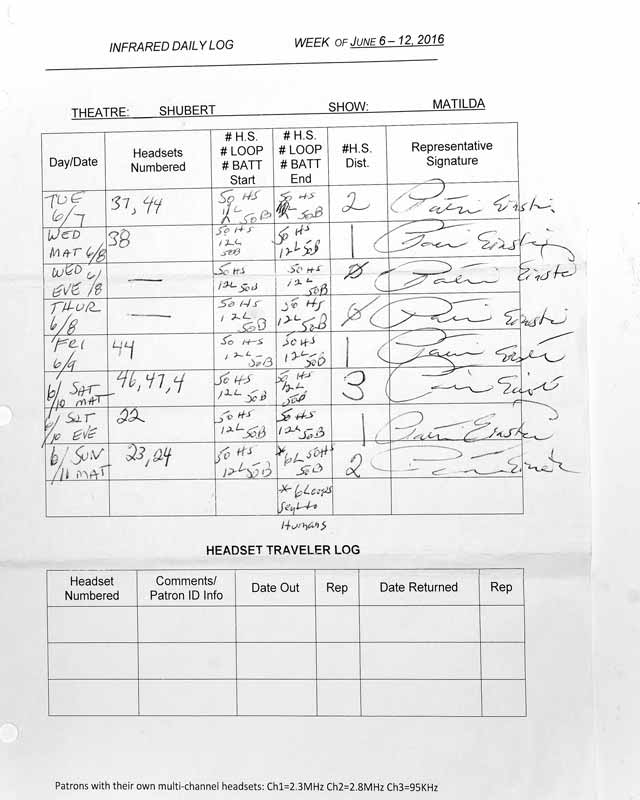 INFRARED DAILY LOG WEEK OF JUNE 6 – 12, 2016
THEATRE: SHUBERT SHOW: MATILDA
Day/Date Headsets Numbered # H.S. # LOOP # BATT Start # H.S. # LOOP # BATT End #H.S. Dist. Representative Signature
TUE 6/7 37, 44 50 HS 12L 50B 50 HS 12L 50B 2
WED MAT 6/8 38 50 HS 12L 50B 50 HS 12L 50B 1
WED EVE 6/8 — 50 HS 12L 50B 50 HS 12L 50B 0
THUR 6/8 — 50 HS 12L 50B 50 HS 12L 50B 0
FRI 6/9 44 50 HS 12L 50B 50 HS 12L 50B 1
6/10 SAT MAT 46, 47, 4 50 HS 12L 50B 50 HS 12L 50B 3
6/10 SAT EVE 22 50 HS 12L 50B 50 HS 12L 50B 1
6/11 SUN MAT 23, 24 50 HS 12L 50B *6L 50HS 50B 2
* 6 Loops
sent to
Humans
HEADSET TRAVELER LOG
Headset Numbered Comments/ Patron ID Info Date Out Rep Date Returned Rep
Patrons with their own multi-channel headsets: Ch1=2.3MHz Ch2=2.8MHz Ch3=95KHz